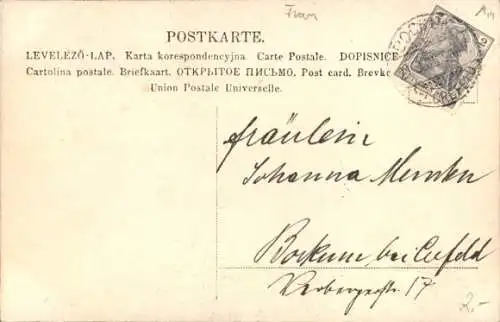 Fran
POSTKARTE.
LEVELEZŐ-LAP. Karta korespondencyjna. Carte Postale. DOPISNICE
Cartolina postale. Briefkaart. ОТКРЫТОЕ ПИСЬМО. Post card. Brevke
Union Postale Universelle.
2
Fräulein
Johanna
Bockum bei Crefeld
17
2.-